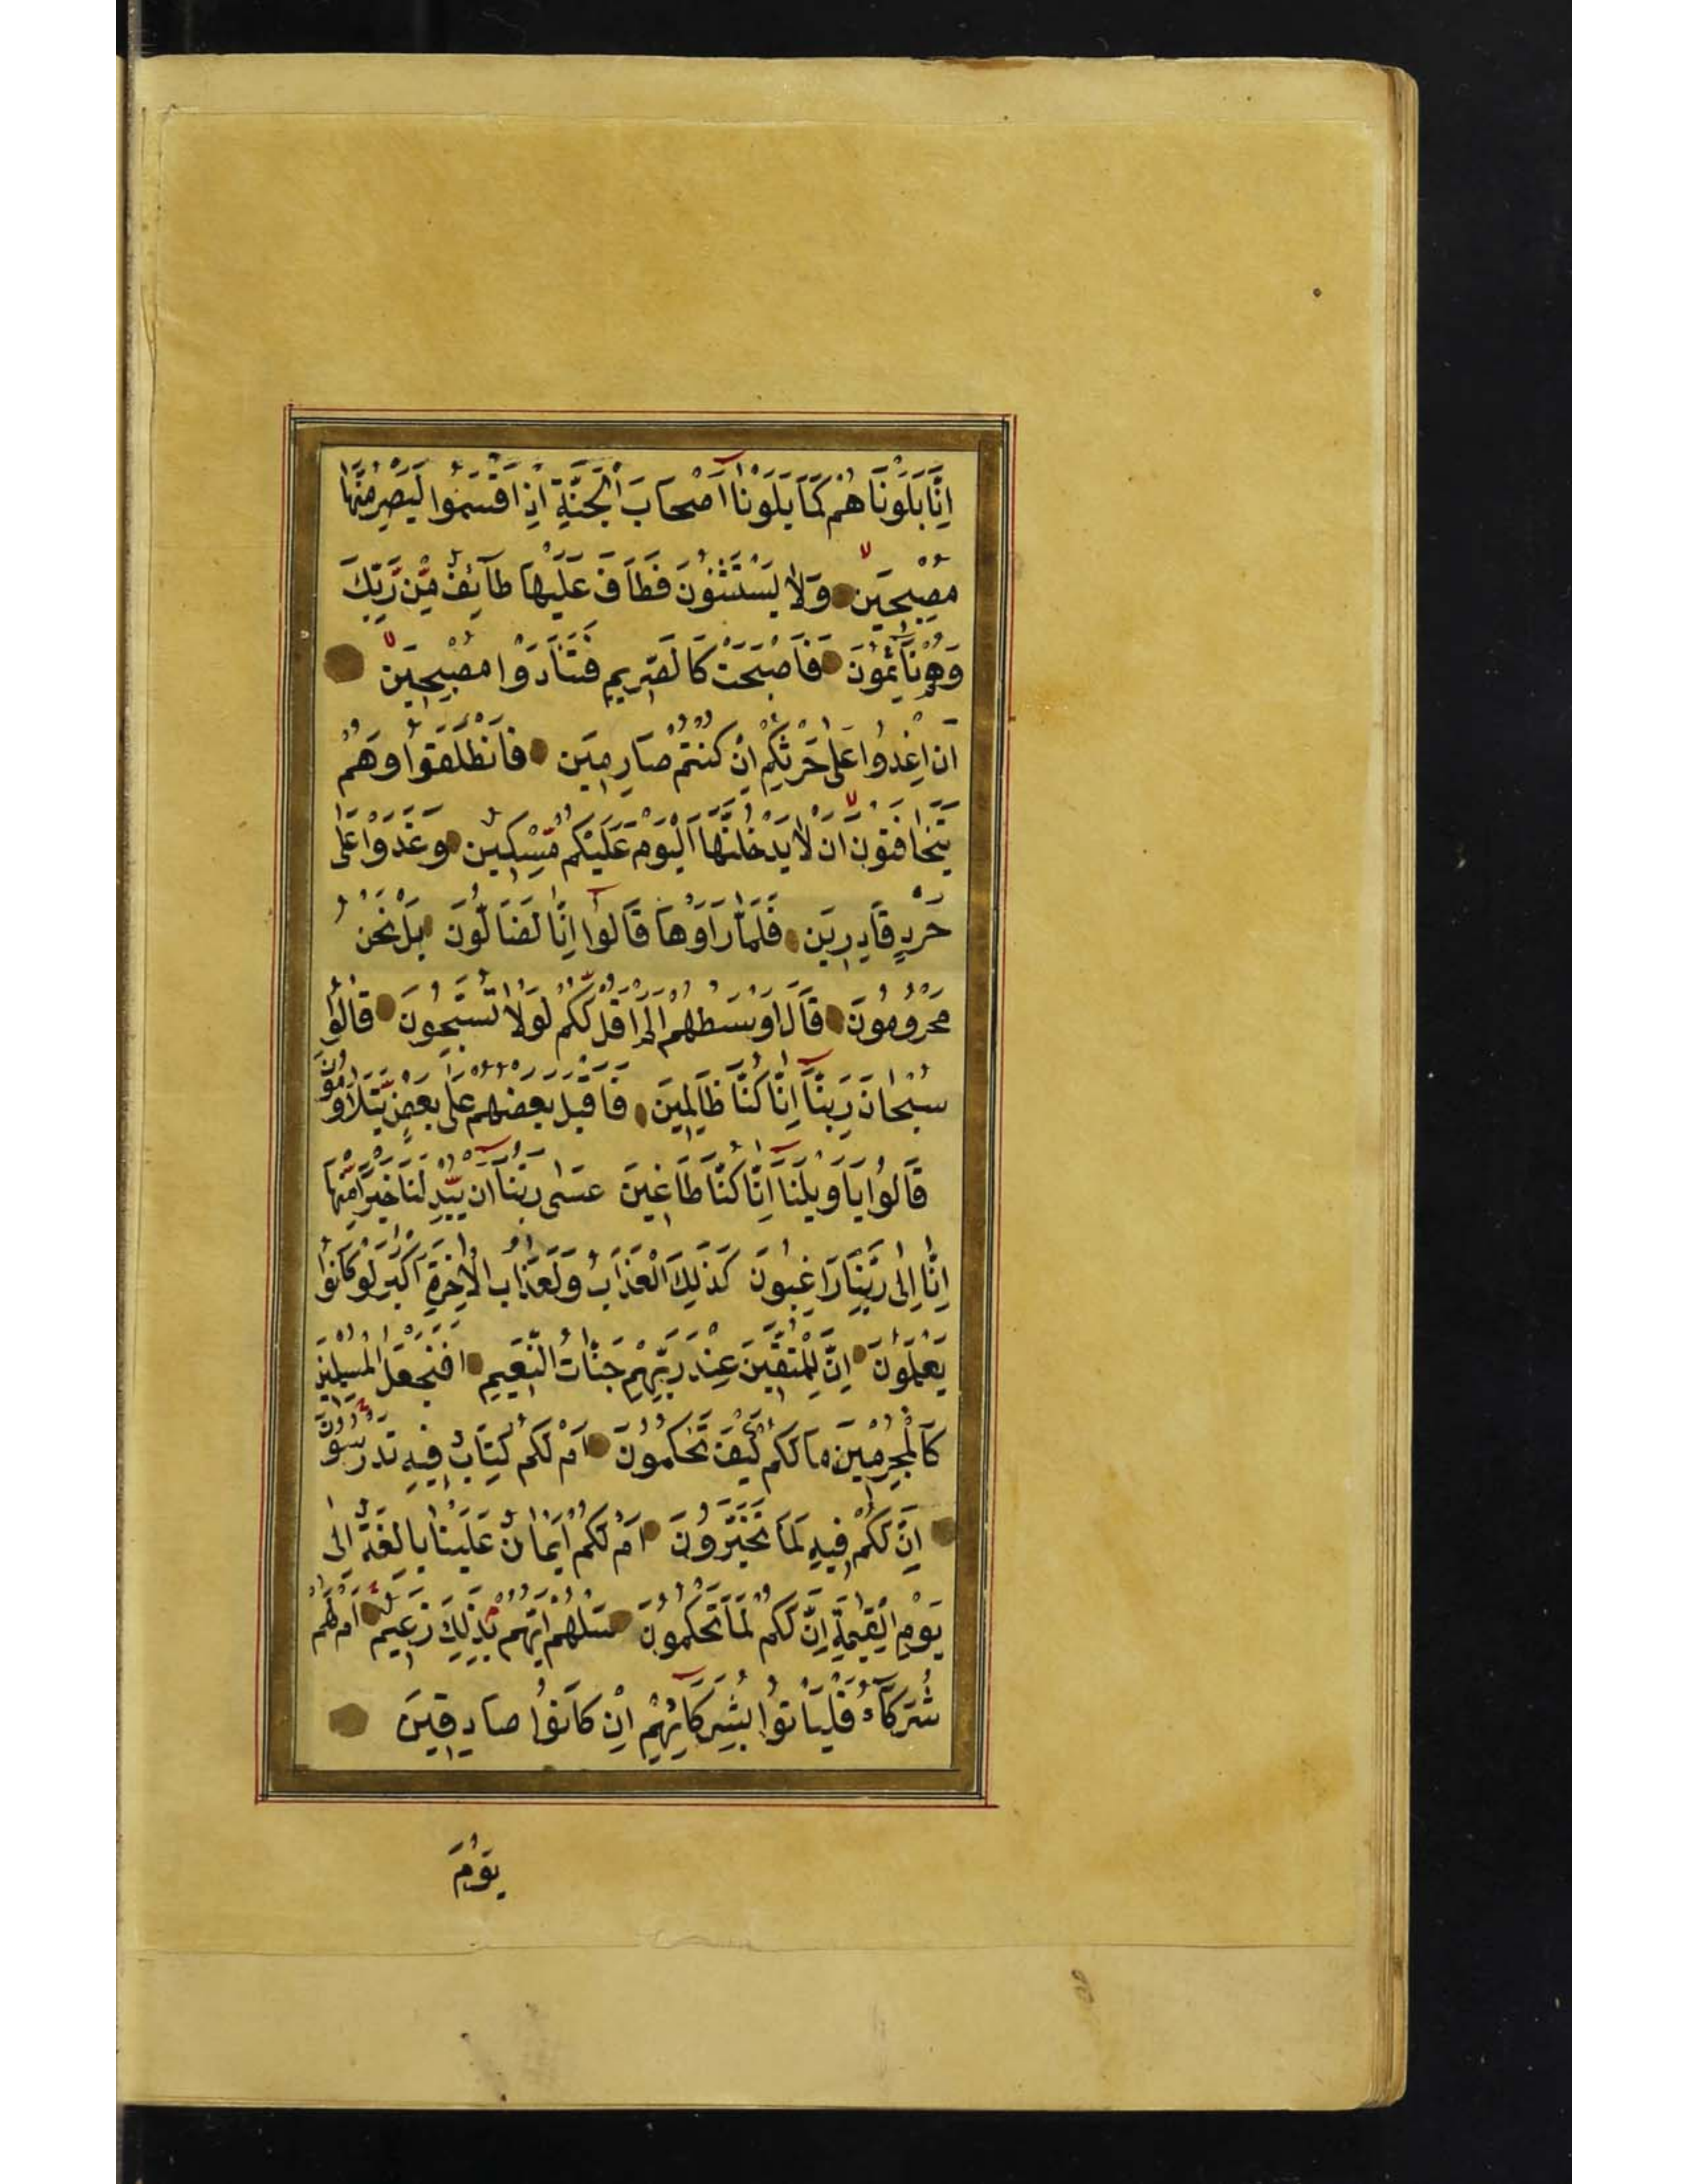 اِنَّا بَلَوْنَاهُمْ كَمَا بَلَوْنَا اَصْحَابَ الْجَنَّةِ اِذْ اَقْسَمُوا لَيَصْرِمُنَّهَا
مُصْبِحِينَ وَلَا يَسْتَثْنُونَ فَطَافَ عَلَيْهَا طَآئِفٌ مِّن رَّبِّكَ
وَهُمْ نَآئِمُونَ فَاَصْبَحَتْ كَالصَّرِيمِ فَتَنَادَوْا مُصْبِحِينَ
اَنِ اغْدُوا عَلٰى حَرْثِكُمْ اِنْ كُنْتُمْ صَارِمِينَ فَانْطَلَقُوا وَهُمْ
يَتَخَافَتُونَ اَنْ لَا يَدْخُلَنَّهَا الْيَوْمَ عَلَيْكُمْ مِّسْكِينٌ وَغَدَوْا عَلٰى
حَرْدٍ قَادِرِينَ فَلَمَّا رَاَوْهَا قَالُوا اِنَّا لَضَالُّونَ بَلْ نَحْنُ
مَحْرُومُونَ قَالَ اَوْسَطُهُمْ اَلَمْ اَقُلْ لَّكُمْ لَوْلَا تُسَبِّحُونَ قَالُوا
سُبْحَانَ رَبِّنَا اِنَّا كُنَّا ظَالِمِينَ فَاَقْبَلَ بَعْضُهُمْ عَلٰى بَعْضٍ يَّتَلَاوَمُونَ
قَالُوا يَا وَيْلَنَا اِنَّا كُنَّا طَاغِينَ عَسٰى رَبُّنَا اَنْ يُّبْدِلَنَا خَيْرًا مِّنْهَا
اِنَّا اِلٰى رَبِّنَا رَاغِبُونَ كَذٰلِكَ الْعَذَابُ وَلَعَذَابُ الْاٰخِرَةِ اَكْبَرُ لَوْ كَانُوا
يَعْلَمُونَ اِنَّ لِلْمُتَّقِينَ عِنْدَ رَبِّهِمْ جَنَّاتِ النَّعِيمِ اَفَنَجْعَلُ الْمُسْلِمِينَ
كَالْمُجْرِمِينَ مَا لَكُمْ كَيْفَ تَحْكُمُونَ اَمْ لَكُمْ كِتَابٌ فِيهِ تَدْرُسُونَ
اِنَّ لَكُمْ فِيهِ لَمَا تَخَيَّرُونَ اَمْ لَكُمْ اَيْمَانٌ عَلَيْنَا بَالِغَةٌ اِلٰى
يَوْمِ الْقِيٰمَةِ اِنَّ لَكُمْ لَمَا تَحْكُمُونَ سَلْهُمْ اَيُّهُمْ بِذٰلِكَ زَعِيمٌ اَمْ لَهُمْ
شُرَكَآءُ فَلْيَاْتُوا بِشُرَكَآئِهِمْ اِنْ كَانُوا صَادِقِينَ
يَوْمَ